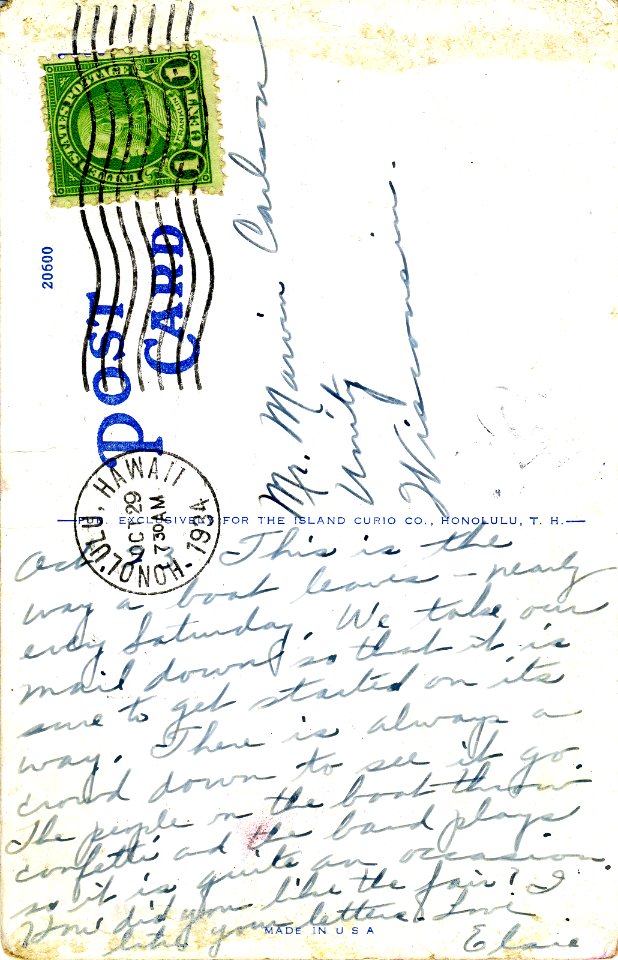 UNITED STATES POSTAGE
1 1
20600
POST
CARD
HONOLULU, HAWAII
OCT 29
7 30 AM
1934
Mr. Marvin Carlson
Unity
Wisconsin.
PUB. EXCLUSIVELY FOR THE ISLAND CURIO CO., HONOLULU, T. H.
Oct This is the
way a boat leaves - nearly
every Saturday. We take our
mail down so that it is
sure to get started on its
way. There is always a
crowd down to see it go.
The people on the boat throw
confetti and the band plays
so it is quite an occasion.
How did you like the fair? I
like your letters. Love
Elsie
MADE IN U S A